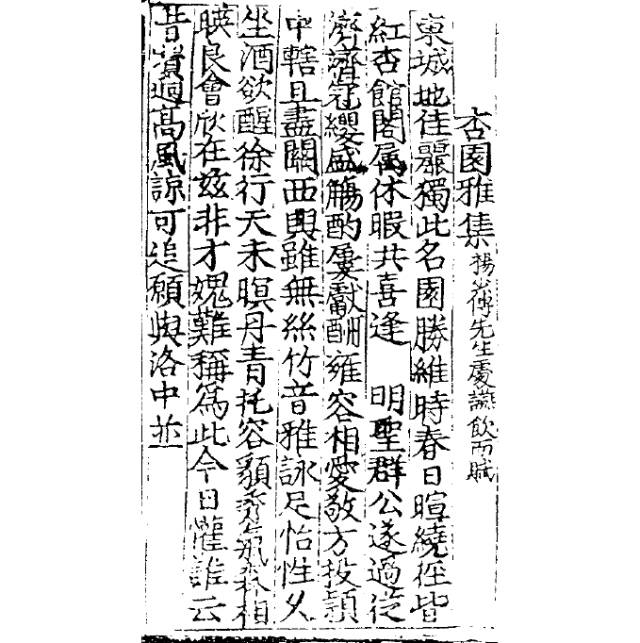 杏園雅集揚翁傅先生慶讌飲而賦
東城地佳麗獨此名園勝維時春日暄繞徑皆
紅杏館閣属休暇共喜逢 明聖群公遂過從
濟濟冠纓盛觴酌屢獻酬雍容相愛敬方投頴
中轄且盡關西興雖無絲竹音雅詠足怡性久
坐酒欲醒徐行天未暝丹青托容貌 相
暎良會欣在兹非才媿難稱爲此今日懽誰云
昔賢過高風諒可追願與洛中並